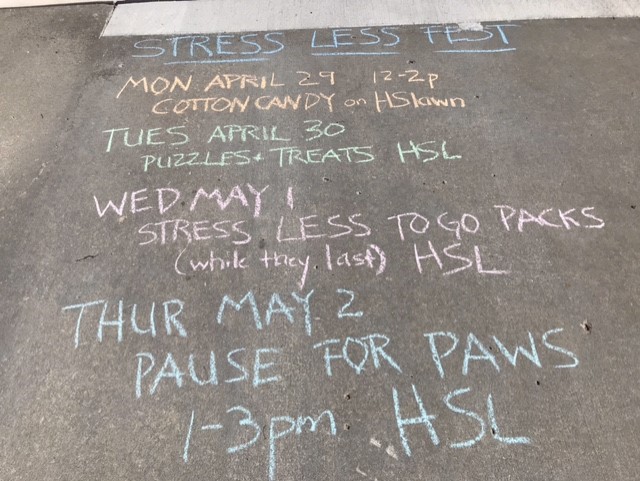 STRESS LESS FEST
MON APRIL 29 12-2p
COTTON CANDY on HSlawn
TUES APRIL 30
PUZZLES + TREATS HSL
WED MAY 1
STRESS LESS TO GO PACKS
(while they last) HSL
THUR MAY 2
PAUSE FOR PAWS
1-3pm HSL